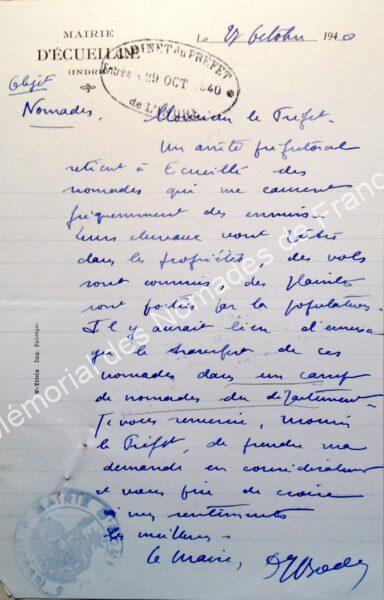 MAIRIE
D'ÉCUEILLÉ
(INDRE)
Le 27 Octobre 1940
CABINET du PRÉFET
Entrée 29 OCT 1940
de L'INDRE
Objet
Nomades.
Monsieur le Préfet.
Un arrêté préfectoral
retient à Ecueillé des
nomades qui me causent
fréquemment des ennuis.
Leurs chevaux vont paître
dans les propriétés, des vols
sont commis, des plaintes
sont portées par la population.
Il y aurait lieu d'envisa
ger le transfert de ces
nomades dans un camp
de nomades du département.
Je vous remercie, Monsieur
le Préfet, de prendre ma
demande en considération
et vous prie de croire
à mes sentiments
les meilleurs.
Le Maire,
St-Yrieix Imp. Fabrègue
MAIRIE
Mémorial des Nomades de France